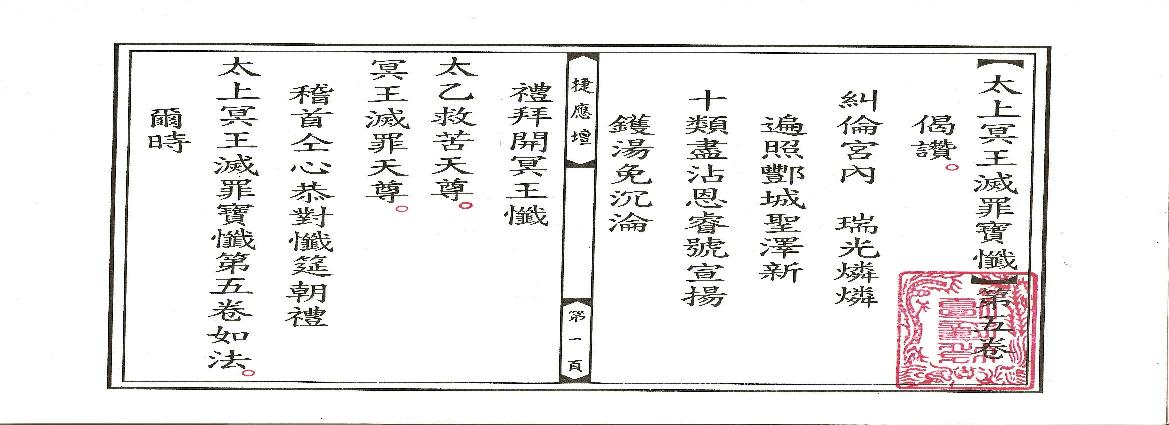 【太上冥王滅罪寶懺】第五卷
偈讚。
糾倫宮內　瑞光燐燐
遍照酆城聖澤新
十類盡沾恩睿號宣揚
鑊湯免沉淪
捷應壇
第一頁
禮拜開冥王懺
太乙救苦天尊。
冥王滅罪天尊。
稽首仝心恭對懺筵朝禮
太上冥王滅罪寶懺第五卷如法。
爾時